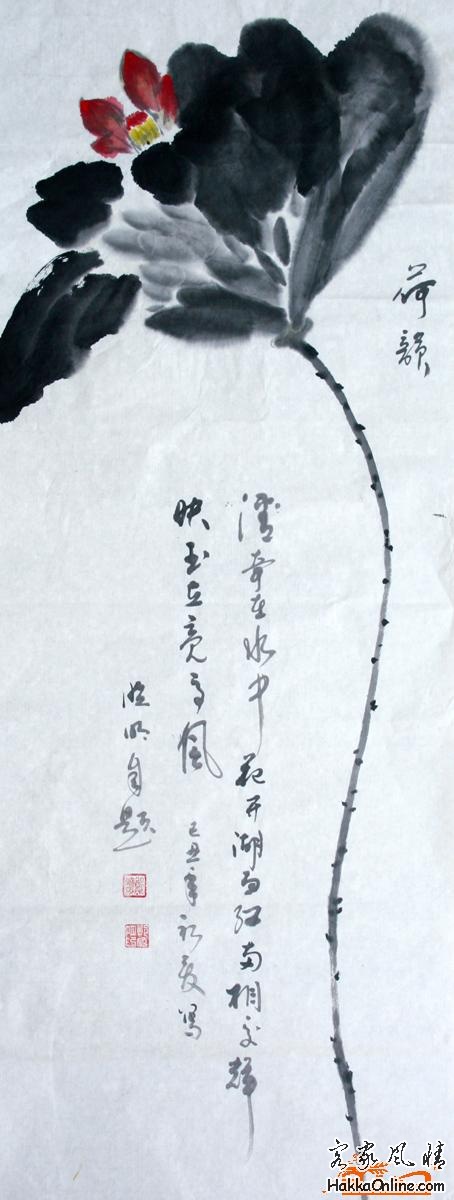 荷韻
在水中 花开湖面红 两相交辉
映玉立高风 己丑年初夏写
明自题
客家风情
HakkaOnline.com